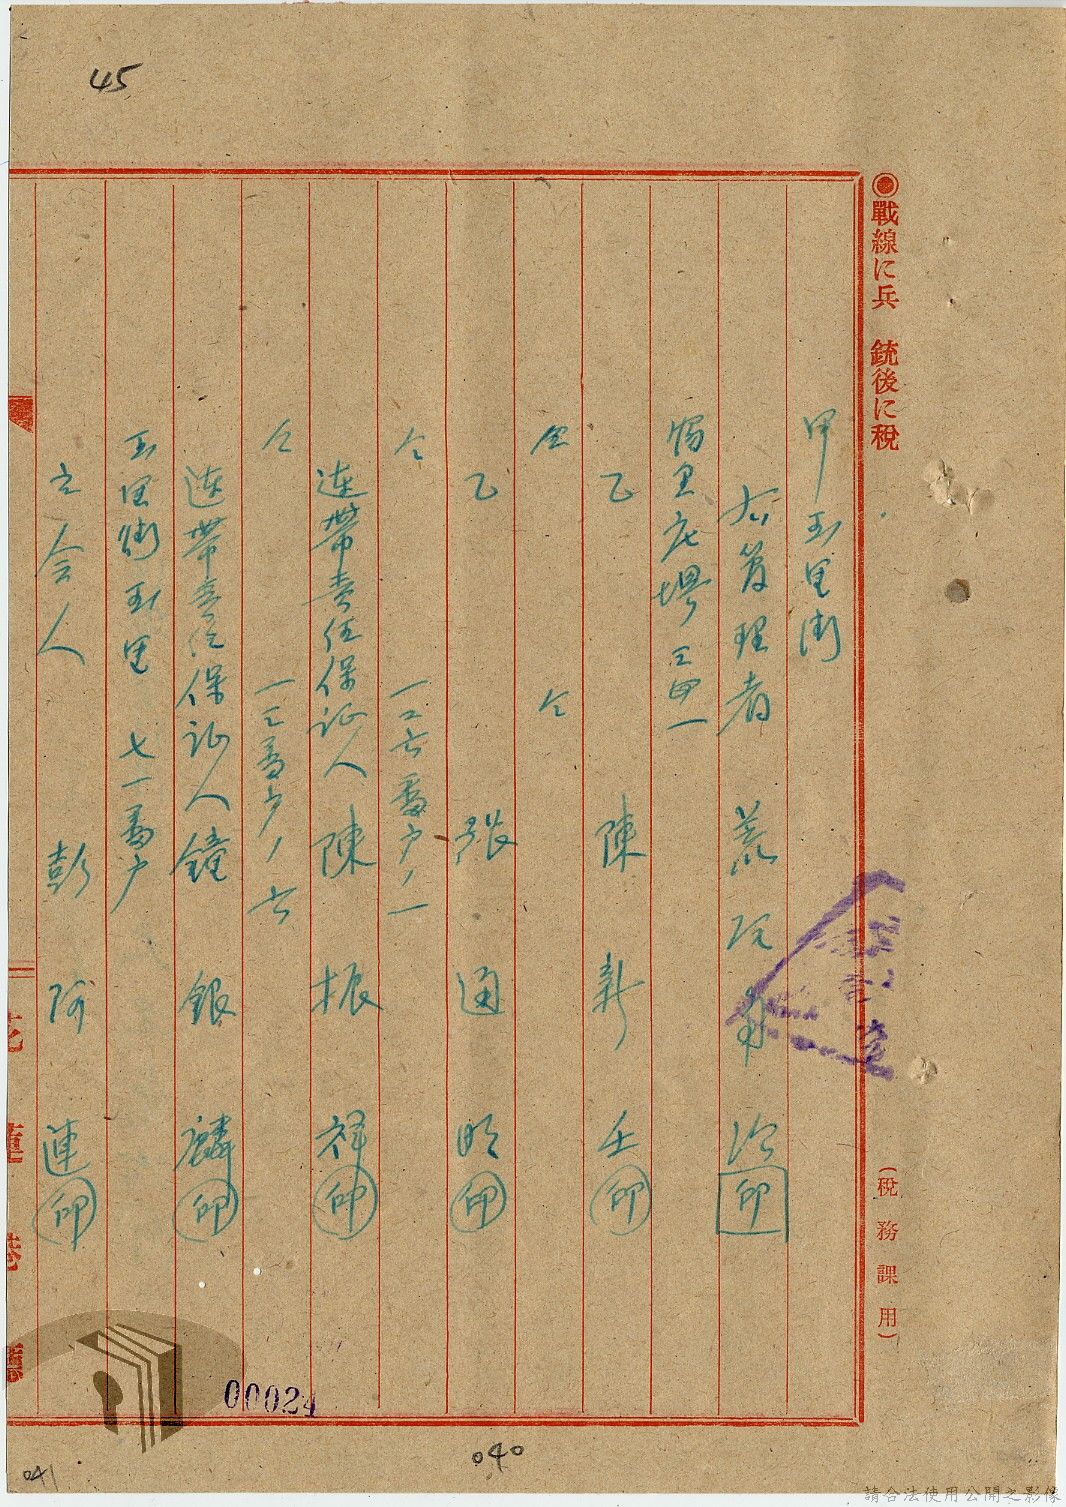 45
●戰線に兵 銃後に稅
(稅務課用)
甲 玉里街
右管理者 荒 印
陳新壬 印
乙
仝 仝
乙 張通明 印
仝 一二六番戶ノ一
連帶責任保証人 陳振祥 印
仝 一三番戶ノ六
連帶責任保証人 鐘銀麟 印
玉里街玉里 七一番戶
立会人 彭阿連 印
花蓮港廳
00024
040
041
請合法使用公開之影像